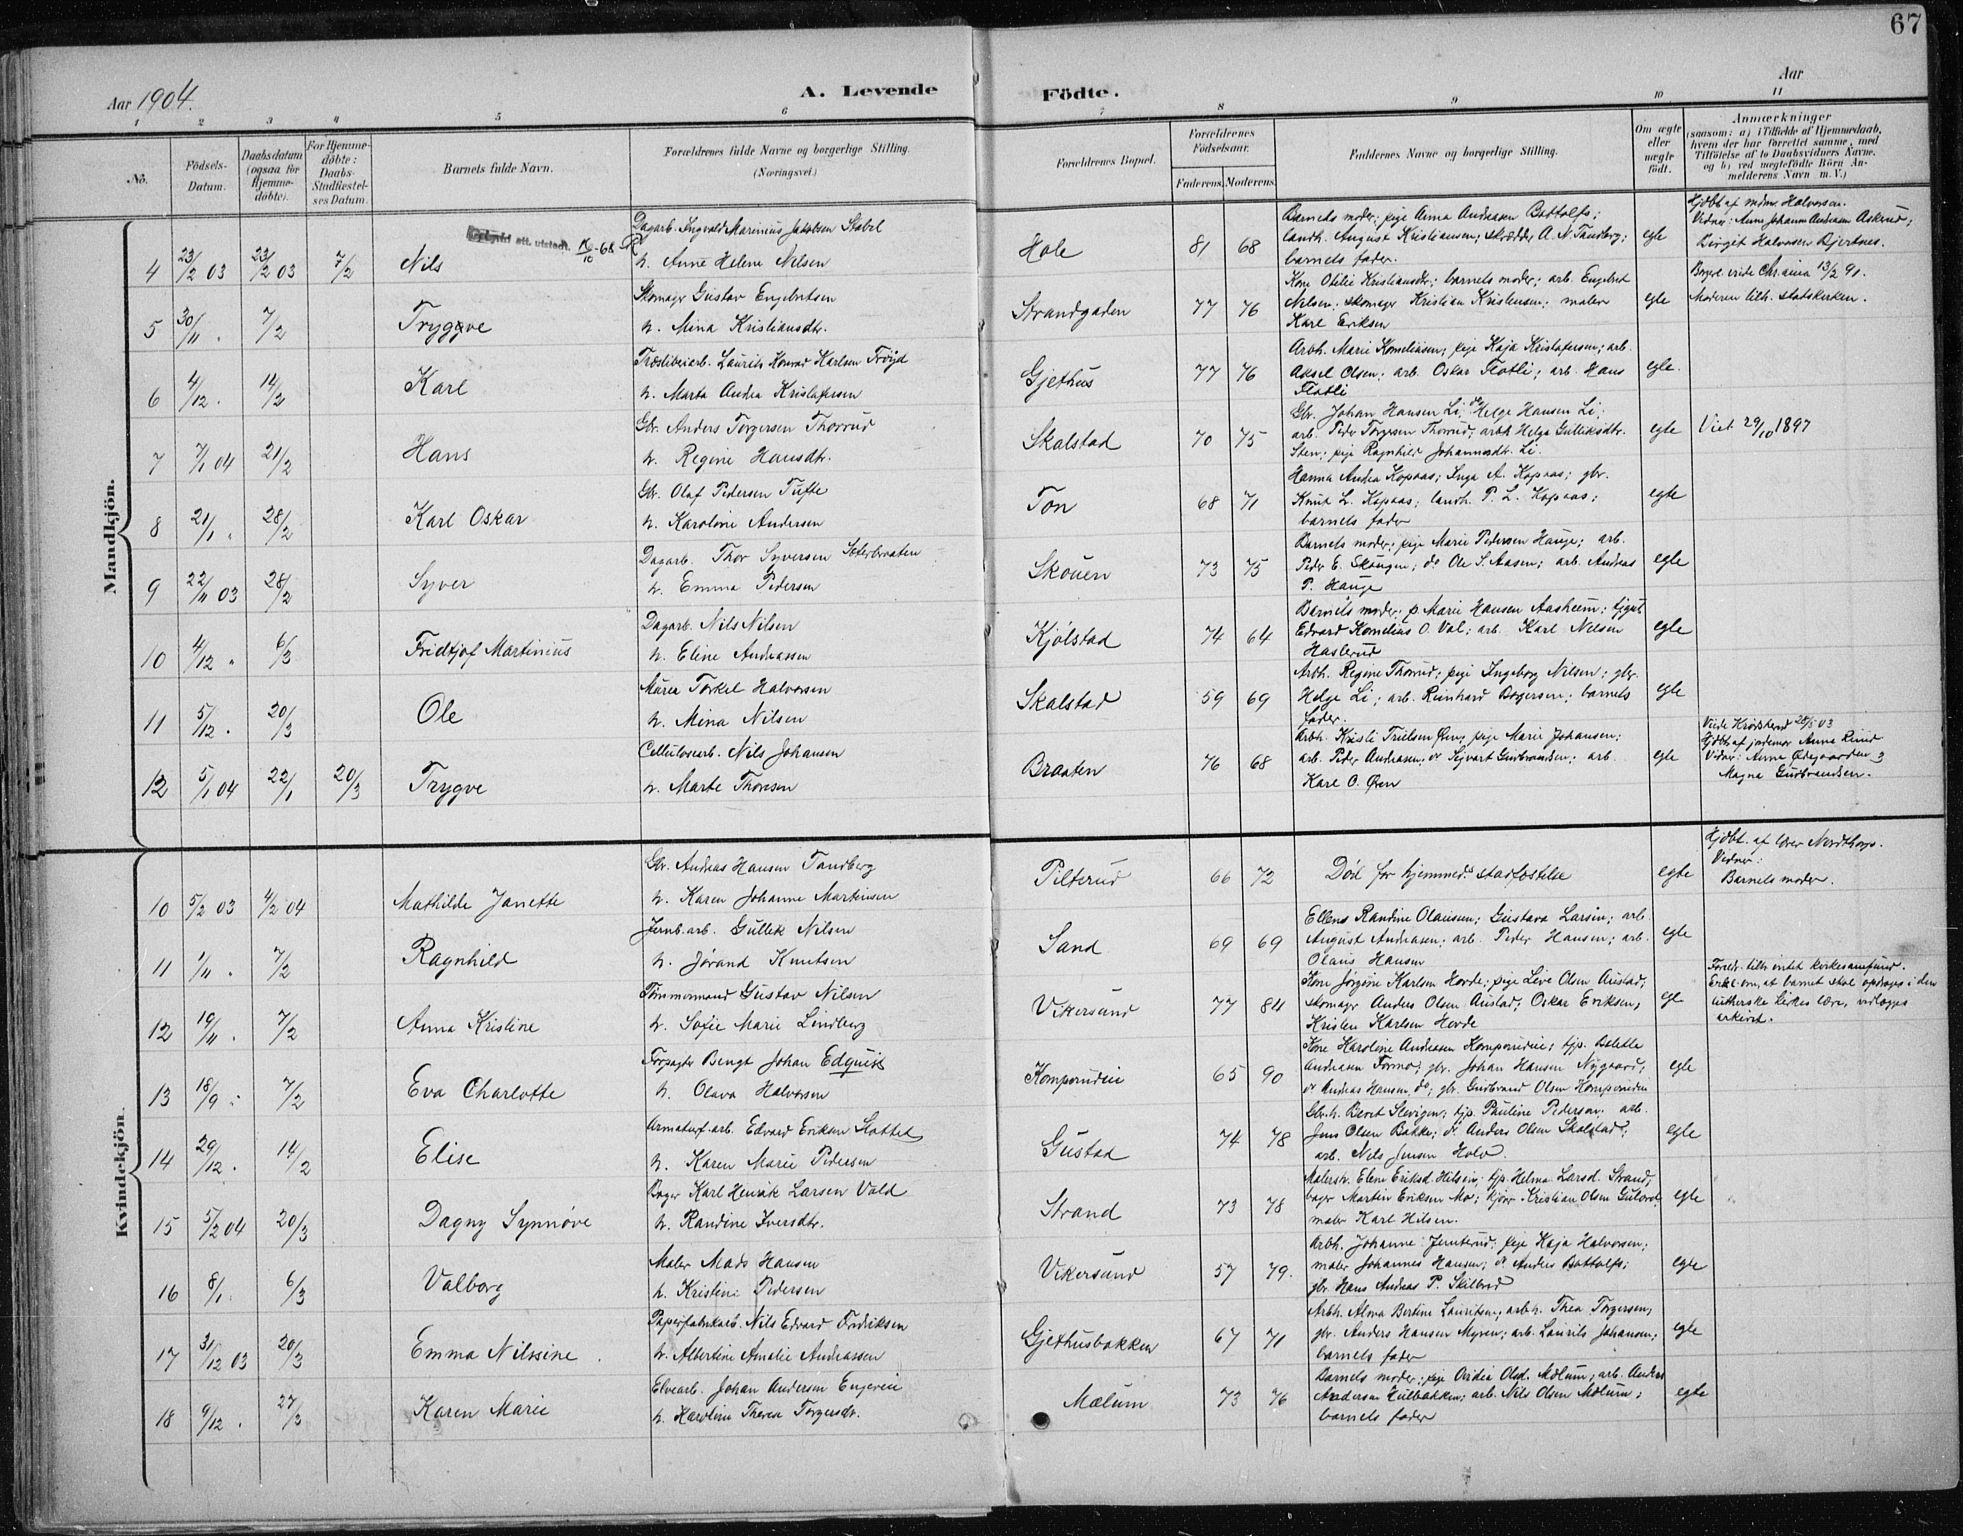 67
Aar 1904.
A. Levende
Födte.
Aar
1 2 3 4 5 6 7 8 9 10 11
No.
Födsels-Datum.
Daabsdatum (ogsaa for Hjemmedöbte).
For Hjemmedöbte: Daabs-Stadfæstelses Datum.
Barnets fulde Navn.
Forældrenes fulde Navne og borgerlige Stilling.
(Næringsvei.)
Forældrenes Bopæl.
Forældrenes Födselsaar.
Faderens. Moderens.
Faddernes Navne og borgerlige Stilling.
Om ægte eller uægte födt.
Anmærkninger
(saasom: a) i Tilfælde af Hjemmedaab, hvem der har forrettet samme, med Tilföielse af to Daabsvidners Navne, og b) ved uægtefödte Börn Anmelderens Navn m. V.)
Mandkjön.
4 23/2 03 23/2 03 7/2 Nils
Dagarb. Ingvald Marinius Jakobsen Stabel
h. Anne Helene Nilsen
Hole 81 68
Barnets moder; pige Anna Andreasen Bottolfs;
landh. August Kristiansen; skrædder A. N. Tandberg;
barnets fader.
egte
Birgit Halvorsen Bjertnes.
5 30/11 " 7/2 Tryggve
Skomager Gustav Engebretsen
h. Mina Kristiansdtr.
Strandgaden 77 76
Kone Otilie Kristiansdtr; barnets moder; arb. Engebret
Nilsen; skomager Kristian Kristensen; maler
Karl Eriksen
egte
Moderen tilh. statskirken.
6 4/12 . 14/2 Karl
Laurits Konrad Karlsen Frøyd
h. Marta Andrea Kristofersen
Gjethus 77 76
Arbh. Marie Korneliusen; pige Kaja Kristofersen; arb.
Aksel Olsen; arb. Oskar Flotli; arb. Hans
Flotli
egte
7 7/1 04 21/2 Hans
Gbr. Anders Torgersen Thorrud
h. Regine Hansdtr.
Skalstad 70 75
Gbr. Johan Hansen Li; do Helge Hansen Li;
arb. Peder Torgersen Thorrud; arbh. Helga Gulliksdtr.
Sten; pige Ragnhild Johannesdtr. Li.
egte
Viet 29/10 1897
8 21/1 " 28/2 Karl Oskar
Gbr. Olaf Pedersen Tufte
h. Karoline Andersen
Ton 68 71
Hanna Andrea Kopaas; Inga A. Kopaas; gbr.
Knut L. Kopaas; landh. P. L. Kopaas;
barnets fader
egte
9 22/11 03 28/2 Syver
Dagarb. Thor Syversen Sæterbraaten
h. Emma Pedersen
Skouen 73 75
Barnets moder; pige Marie Pedersen Hauge; arb.
Peder E. Skaugen; do Ole S. Aasen; arb. Andreas
P. Hauge
egte
10 4/12 " 6/3 Fridtjof Martinius
Dagarb. Nils Nilsen
h. Eline Andreassen
Kjølstad 74 64
Barnets moder; p. Marie Hansen Aasheim; tjgut
Edvard Kornelius O. Val; arb. Karl Nilsen
Haslerud
egte
11 5/12 . 20/3 Ole
Murer Torkel Halvorsen
h. Mina Nilsen
Skalstad 59 69
Arbh. Regine Thorrud; pige Ingeborg Nilsen; gbr.
Helge Li; arb. Reinhard Borgersen; barnets
fader.
egte
12 5/1 04 22/1 20/3 Trygve
Cellulosearb. Nils Johansen
h. Marte Thoresen
Braaten 76 68
Arbh. Kristi Truelsen Øren; pige Marie Johansen;
arb. Peder Andreasen; do Sigvart Gudbrandsen; arb.
Karl O. Øren
egte
Viede Krødsherred 28/5 03
Hjdbt af jordemor Anna Ruud
Vidner: Anne Ødegaarden &
Magna Gudbrandsen.
Kvindekjön.
10 5/2 03 4/2 04 Mathilde Janette
Gbr. Andreas Hansen Tandberg
h. Karen Johanne Martinsen
Pilterud 66 72
Død før hjemmed. stadfæstelse
egte
Hjdbt. af lærer Nordthorp.
Vidner:
Barnets moder.
11 1/11 . 7/2 Ragnhild
Jernb.arb. Gullek Nilsen
h. Jørand Knutsen
Sand 69 69
Ellens Randine Olausen; Gustava Larsen; arb.
August Andreasen; arb. Peder Hansen; arb.
Olaus Hansen
egte
12 19/11 . 7/2 Anna Kristine
Tømmermand Gustav Nilsen
h. Sofie Marie Lindberg
Vikersund 77 84
Kone Jørgine Karlsen Hovde; pige Live Olsen Austad;
skomager Anders Olsen Austad; Oskar Eriksen;
Kristen Karlsen Hovde
Foreldr. tilh. intet kirkesamfund.
Erkl. om, at barnet skal opdrages i den
lutherske kirkes lære, vedlægges
arkivet.
13 18/9 . 7/2 Eva Charlotte
Forpagter Bengt Johan Edquist
h. Olava Halvorsen
Komperudeie 65 90
Kone Karoline Andreasen Komperudeie; tjp. Belette
Andreasen Formo; gbr. Johan Hansen Nygaard;
do Andreas Hansen do; gbr. Gudbrand Olsen Komperudeie
egte
14 29/12 . 14/2 Elise
Armaturf.arb. Edvard Eriksen Slottet
h. Karen Marie Pedersen
Gustad 74 78
Gbrk. Berit Slevigen; tjp. Pauline Pedersen; arb.
Jens Olsen Bakke; do Anders Olsen Skalstad;
arb. Nils Jensen Holv
egte
15 5/2 04 20/3 Dagny Synnøve
Bager Karl Henrik Larsen Vald
h. Randine Iversdtr.
Strand 73 78
Malerk. Elene Eriksd. Hilsen; tjp. Helma Larsd. Strand;
bager Martin Eriksen Mo; kjør. Kristian Olsen Gulord;
maler Karl Hilsen.
egte
16 8/1 . 6/3 Valborg
Maler Mads Hansen
h. Kristine Pedersen
Vikersund 57 79.
Arbh. Johanne Jernterud; pige Kaja Halvorsen;
maler Johannes Hansen; do Anders Bottolfs;
gbr. Hans Andreas P. Skilbred
egte
17 31/12 03 20/3 Emma Nilssine
Papirfabrikarb. Nils Edvard Fredriksen
h. Albertine Amalie Andreassen
Gjethusbakken 67 71
Arbh. Alma Bertine Lauritsen; arbh. Thea Torgersen;
gbr. Anders Hansen Myren; arb. Laurits Johansen;
barnets fader
egte
18 9/12 . 27/3 Karen Marie
Elvearb. Johan Andersen Engereie
h. Karoline Therea Torgersdr.
Mælum 73 76
Barnets moder; pige Ovidia Olsd. Mælum; arb. Anders
Andersen Hulbakken; arb. Nils Olsen Mælum;
barnets fader
egte